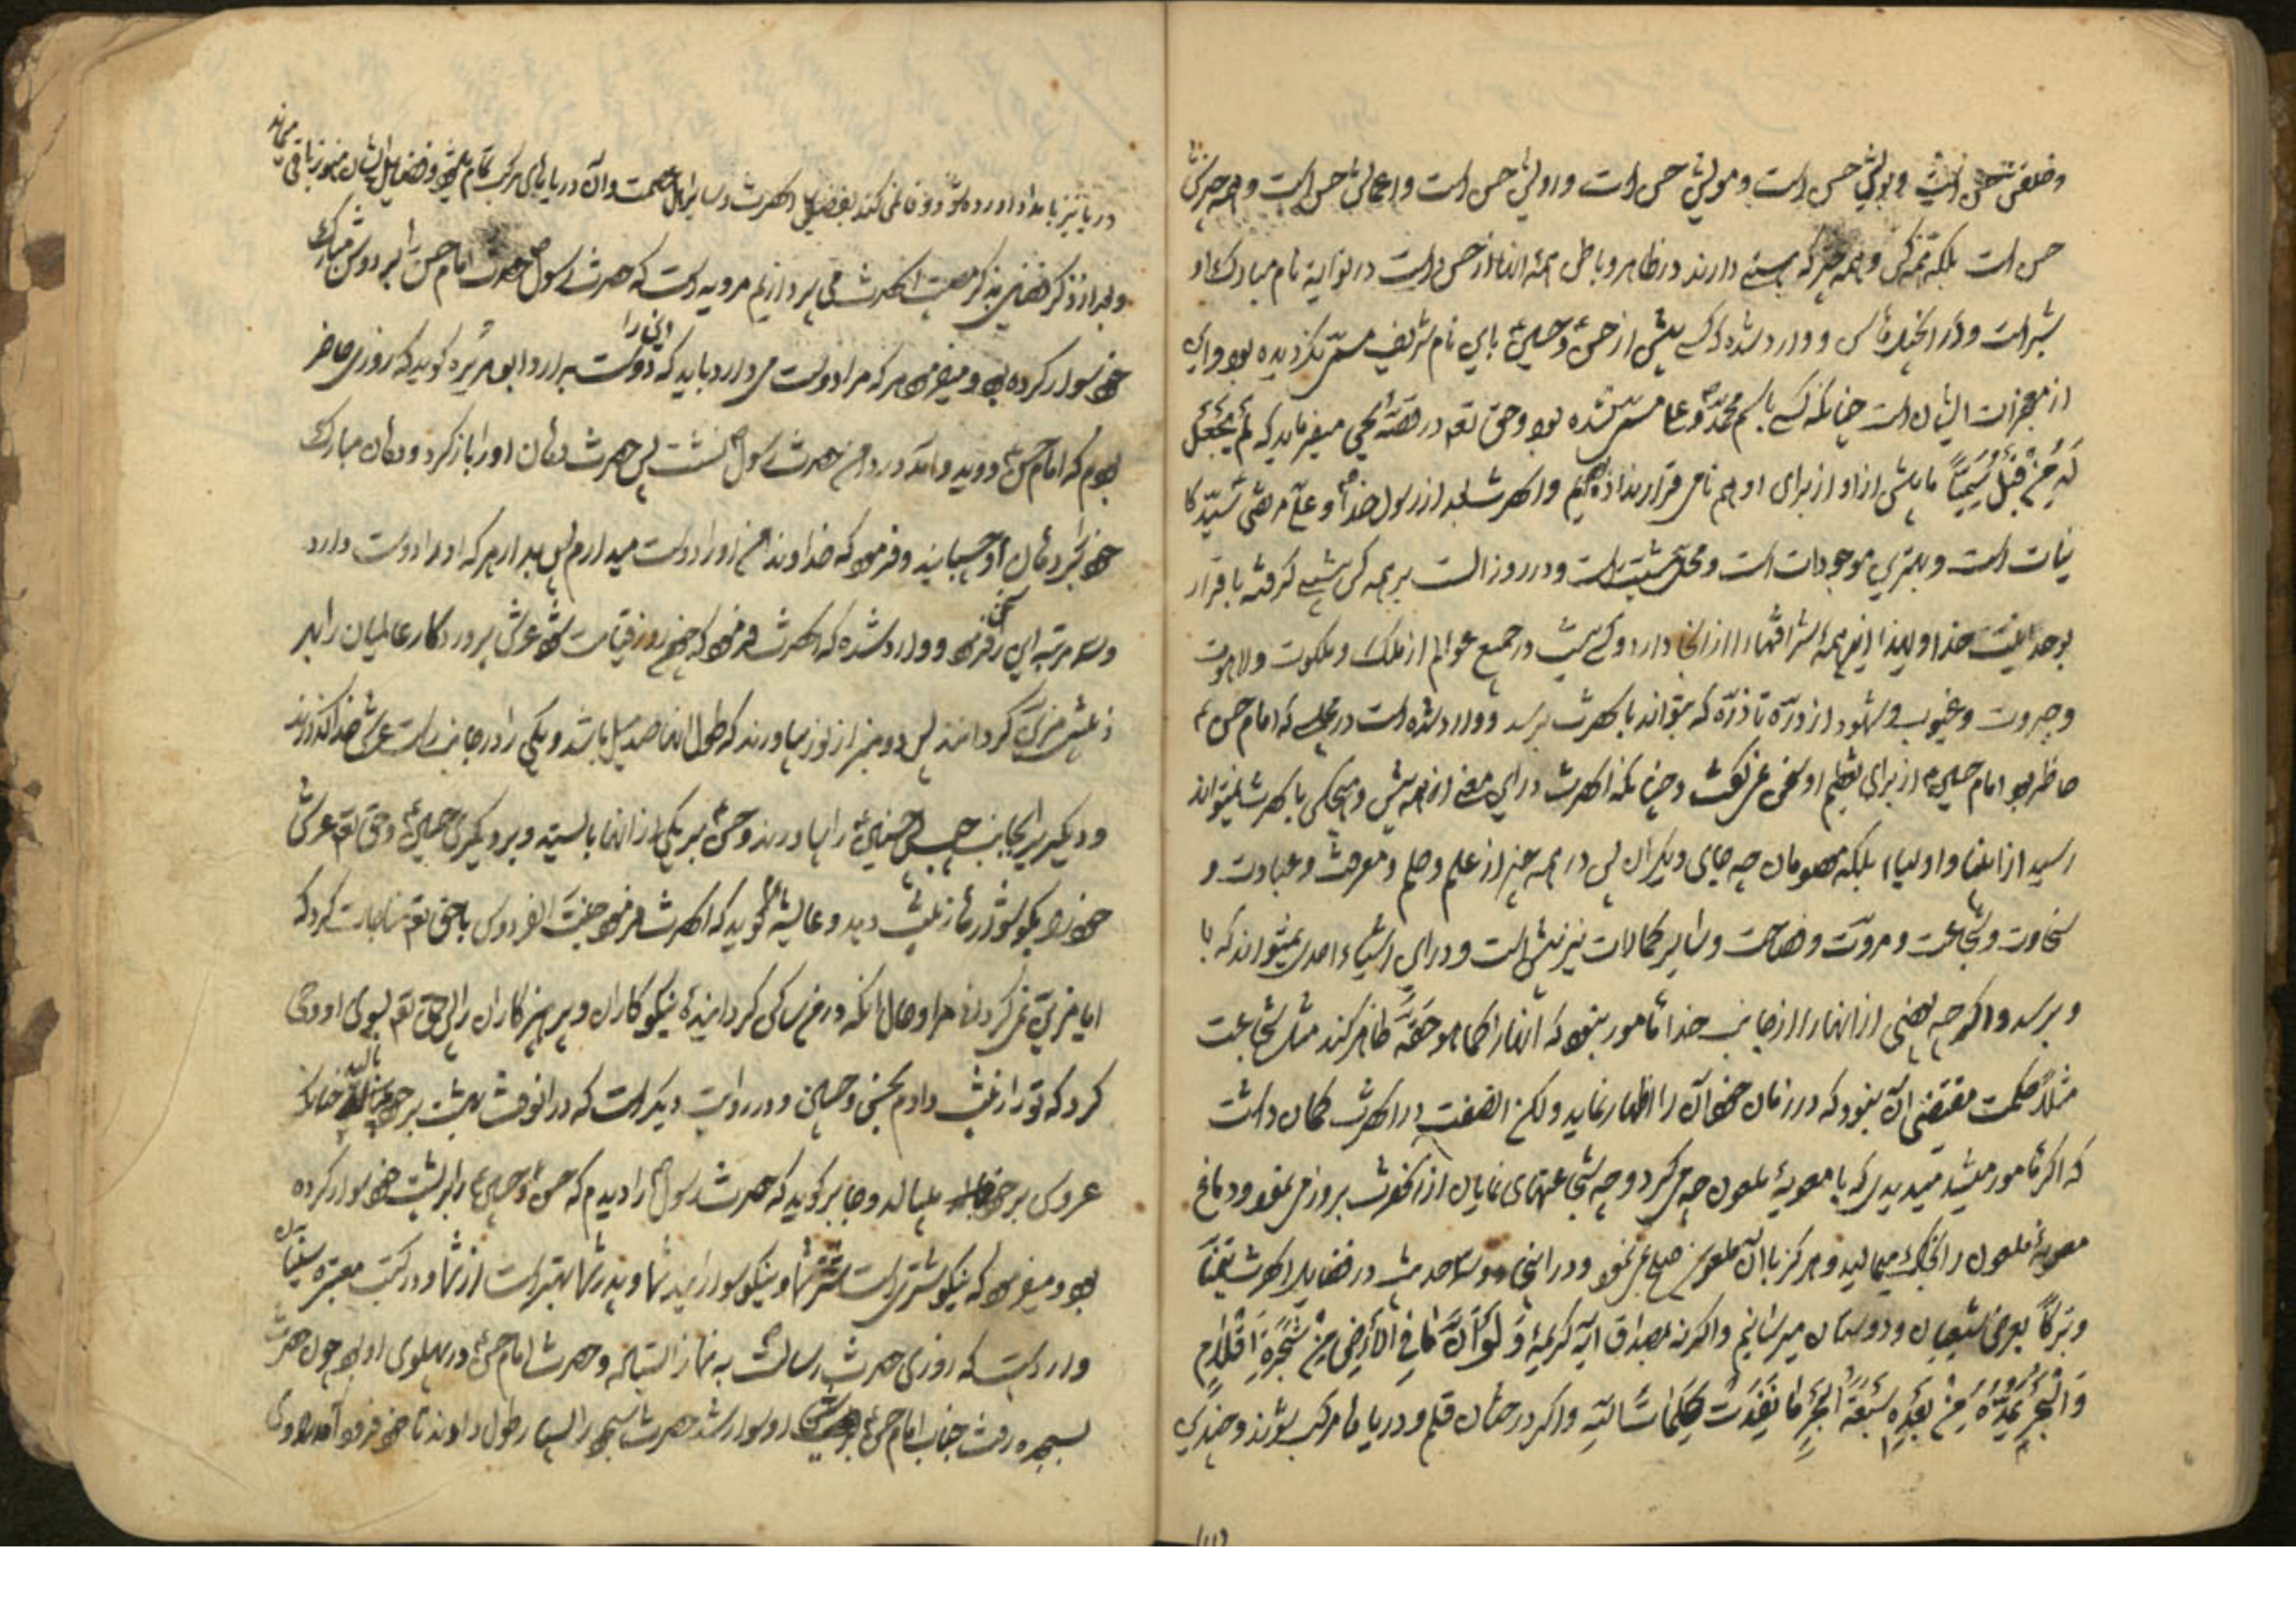 وخلقش حسن است وبویش حسن است ومویش حسن است ورویش حسن است واعمالش حسن است وهمه چیزش
حسن است بلکه همه کس وهمه چیز که حسنی دارند در ظاهر وباطن همه آنها از حسن است نام مبارک او
شبر است ووارد شده که کسی پیش از حسن وحسین باین نام شریف مسمی نگردیده بود واین
از معجزات ایشان است چنانکه کسی باسم محمد وعلی مسمی نشده بود وحق تعم در قصهٔ یحیی میفرماید که لم یجعل
له من قبل سمیا ما پیش از او از برای او هم نامی قرار نداده ایم وآنحضرت بعد از رسول خدا وعلی مرتضی سید کا
ینات است وبهترین موجودات است ومحل مشیت است ودر روز الست بر همه کس گرفته باقرار
بوحدانیت خدا ولهذا اینهمه شرافتها را دارد وکسی نیست در جمیع عوالم از ملک وملکوت ولاهوت
وجبروت وغیوب وشهود از ذره تا ذره که بتواند بآنحضرت برسد ووارد شده است در مجلسی که امام حسن ع
حاظر بود امام حسین ع از برای تعظیم او سخن نمی‌گفت وچنانکه آنحضرت در این معنی از همه پیش وهیچکس بآنحضرت نمیتواند
رسید از انبیا واولیا بلکه معصومان چه جای دیگران پس در همه چیز از علم وحلم ومعرفت وعبادت و
سخاوت وشجاعت ومروت وفصاحت وسایر کمالات نیز پیش است ودر این اشیاء احدی نمیتواند که با
وبرسد واگر چه بعضی از آنها را از جانب خدا مامور نبود که آنها را کما هو حقه ظاهر کند مثل شجاعت
مثلا حکمت مقتضی آن نبود که در زمان خود آن را اظهار نماید ولکن آنصفت در آنحضرت کمان داشت
که اگر مامور میشد میدیدی که با معویهٔ ملعون چه می‌کرد وچه شجاعتهای نمایان از آنحضرت بروز می‌نمود ودماغ
معویهٔ ملعون را بخاک میمالید وهرگز با آن ملعون صلح نمی‌نمود ودر اینجا دو سه حدیث در فضایل آنحضرت تیمنا
وتبرکا بعرض شیعیان ودوستان میرسانیم واگرنه بمصداق آیه کریمهٔ ولو ان ما فی الارض من شجرة اقلام
والبحر یمده من بعده سبعة ابحر ما نفدت کلمات الله واگر درختان قلم ودریاها مرکب شوند وچندین
دریا نیز بامداد آورده شود وفا نمی کند بفضایل آنحضرت وسایر اهل عصمت وآن دریاهای مرکب تمام میشود وفضایل ایشان هنوز باقی میماند
وبعد از ذکر فضایل بذکر مصیبت آنحضرت می پردازیم مرویه است که حضرت رسول ص حضرت امام حسن را بر دوش مبارک
خود سوار کرده بود ومیفرمود هر که مرا دوست می دارد باید که این را دوست بدارد ابو هریره گوید که روزی حاضر
بودم که امام حسن دوید وآمد در دامن حضرت رسول نشست پس حضرت دهان او را باز کرد ودهان مبارک
خود بر دهان او چسبانید وفرمود که خداوندا من او را دوست میدارم پس بدار هر که او را دوست دارد
وسه مرتبه این سخن را فرمود ووارد شده که آنحضرت فرمود که چون روز قیامت شود عرش پروردگار عالمیان را بهر
زینتی مزین گردانند پس دو منبر از نور بیاورند که طول آنها صد میل باشد ویکی را در جانب راست عرش خدا گذارند
ودیگر برا بجانب چپ پس حسنین را بیاورند وحسن بر یکی از آنها بایستد وبر دیگری حسین وحق تعم عرش
خود را بگوشواره‌ها زینت دهد وعایشه گوید که آنحضرت فرمود جنت الفردوس با حق تعم مناجات کرد که
ایا مزین نمی گردانی مرا وحال آنکه در من ساکن گردانیدهٔ نیکوکاران وپرهیزکاران را پس حق تعم بسوی او وحی
کرد که تو را زینت دادم بحسن وحسین ودر روایت دیگر است که در آنوقت بهشت بر خود بالید چنانکه
عروس بر خود میبالد وجابر گوید که حضرت رسول را دیدم که حسن وحسین را بر پشت خود سوار کرده
بود ومیفرمود که نیکو شتریست شتر شما ونیکو سوارانید شما وپدر شما بهتر است از شما ودر کتب معتبره سنیان
وارد است که روزی حضرت رسالت به نماز ایستاده وحضرت امام حسن در پهلوی او بود چون حضرت
بسجده رفت جناب امام حسن بر پشت او سوار شد حضرت سجود را بسیار طول دادند تا خود فرود آمد راوی